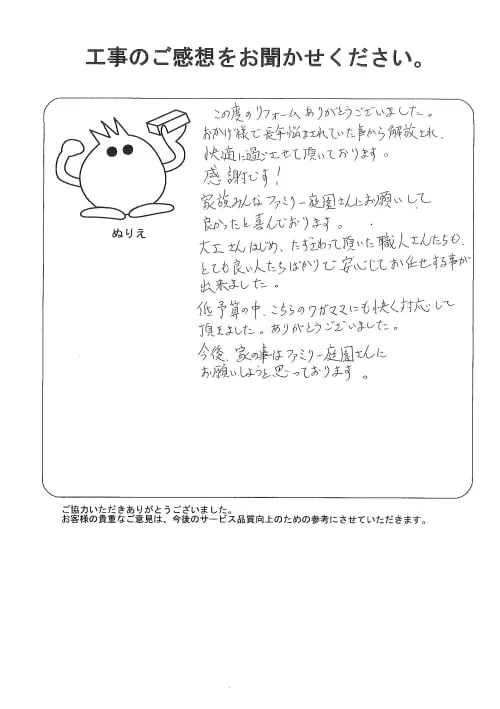 工事のご感想をお聞かせください。
この度のリフォームありがとうございました。
おかげ様で長年悩まされていた事から解放され、
快適に過ごさせて頂いております。
感謝です!
家族みんなファミリー庭園さんにお願いして
良かったと喜んでおります。
大工さんはじめ、たずさわって頂いた職人さんたちも、
とても良い人たちばかりで安心してお任せする事が
出来ました。
低予算の中、こちらのワガママにも快く対応して
頂きました。ありがとうございました。
今後、家の事はファミリー庭園さんに
お願いしようと思っております。
ぬりえ
ご協力いただきありがとうございました。
お客様の貴重なご意見は、今後のサービス品質向上のための参考にさせていただきます。